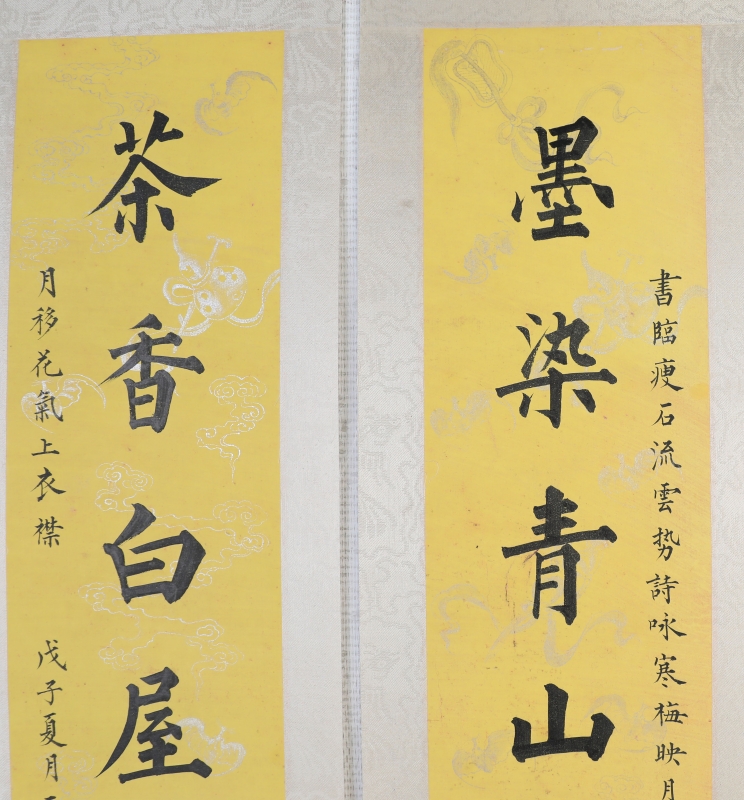 墨染青山
書臨瘦石流雲势詩咏寒梅映月
茶香白屋
月移花氣上衣襟
戊子夏月